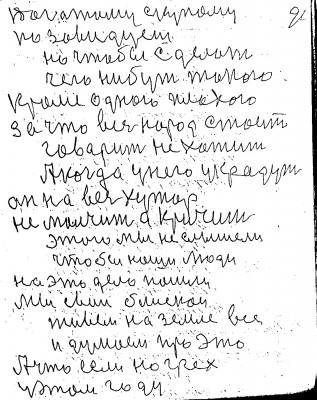 Богатому скупому
позавидуеш
но чтобы сделат
чего нибут такого
Кроме одного плахого
За что вен народ стоит
говарит не хатит
А когда у него украдут
он на вен хутор
не молчит а кричит
этого мы не слышели
чтобы нощи люди
на это дело пошли
Мы свои близкой
живем на земле все
и думаем про это
А что если на грех
у этом годи